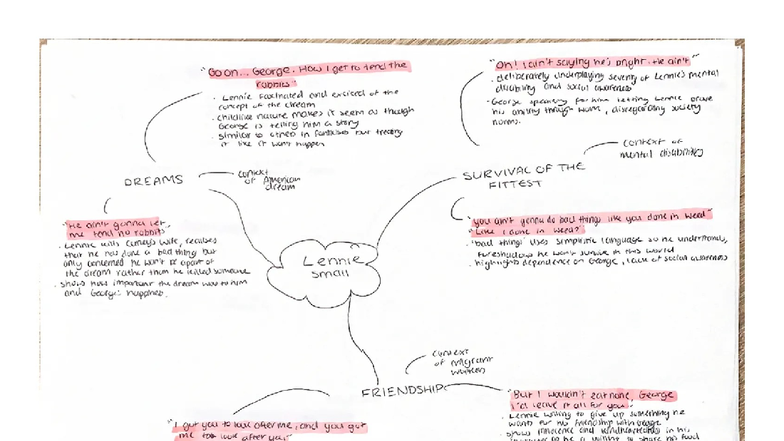 "Go on... George. How I get to tend the
rabbits"
. Lennie fascinated and excited of the
concept of the dream
. Childlike nature makes it seem as though
George is telling him a story
. Similar to others in fantasises but treating
it like it won't happen
DREAMS
context
of American
dream
"He ain't gonna let
me tend no rabbits"
. Lennie kills Curley's wife, realises
that he has done a bad thing but
only concerned he won't be apart of
the dream rather than he killed someone
. shows how important the dream was to him
and George's happiness.
Lennie
Small
"Oh! I ain't saying he's bright. He ain't"
. deliberately underplaying severity of Lennie's mental
disability and social awareness
. George speaking for him letting Lennie prove
his ability through work, disregarding society
norms.
context of
mental disabilities
SURVIVAL OF THE
FITTEST
"you ain't gonna do bad things like you done in weed"
"Like I done in Weed?"
. 'bad things' uses simplistic language so he understands,
foreshadows he won't survive in this world
. highlights dependence on George, lack of social awareness
context
of migrant
workers
FRIENDSHIP
"I got you to look after me, and you got
me to look after you"
"But I wouldn't eat none, George
I'd leave it all for you"
. Lennie willing to give up something he
wants for his friendship with George
shows innocence and kindheartedness in his
to be a willing to share his food